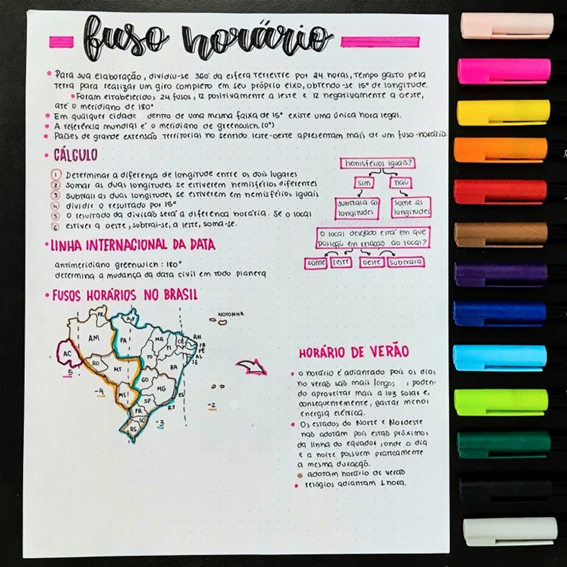 fuso horário
• Para sua elaboração, dividiu-se 360° da esfera terrestre por 24 horas, tempo gasto pela
terra para realizar um giro completo em seu próprio eixo, obtendo-se 15° de longitude.
• Foram estabelecidos 24 fusos, 12 positivamente a leste e 12 negativamente a oeste,
até o meridiano de 180°
• Em qualquer cidade dentro de uma mesma faixa de 15° existe uma única hora legal.
• A referência mundial é o meridiano de greenwich (0°)
• Países de grande extensão territorial no sentido leste-oeste apresentam mais de um fuso-horário
• CÁLCULO
1 Determinar a diferença de longitude entre os dois lugares
2 Somar as duas longitudes se estiverem hemisférios diferentes
3 Subtrair as duas longitudes se estiverem em hemisférios iguais
4 dividir o resultado por 15°
5 O resultado da divisão será a diferença horária. Se o local
6 estiver a oeste, subtrai-se, a leste, soma-se.
hemisférios iguais?
sim
não
subtraia as
longitudes
some as
longitudes
O local desejado está em que
posição em relação ao local?
some
leste
oeste
subtraia
• LINHA INTERNACIONAL DA DATA
antimeridiano greenwich: 180°
determina a mudança da data civil em todo planeta
• FUSOS HORÁRIOS NO BRASIL
RR
AP
NORONHA
AM
PA
MA
CE
RN
PB
PE
AL
SE
PI
AC
RO
TO
BA
MT
GO
MG
ES
MS
SP
RJ
PR
SC
RS
-5
-4
-3
-2
HORÁRIO DE VERÃO
• o horário é adiantado pois os dias
no verão são mais longos, poden-
do aproveitar mais a luz solar e,
consequentemente, gastar menos
energia elétrica.
• Os estados do Norte e Nordeste
não adotam pois estão próximos
da linha do equador, onde o dia
e a noite possuem praticamente
a mesma duração.
adotam horário de verão
• relógios adiantam 1 hora.